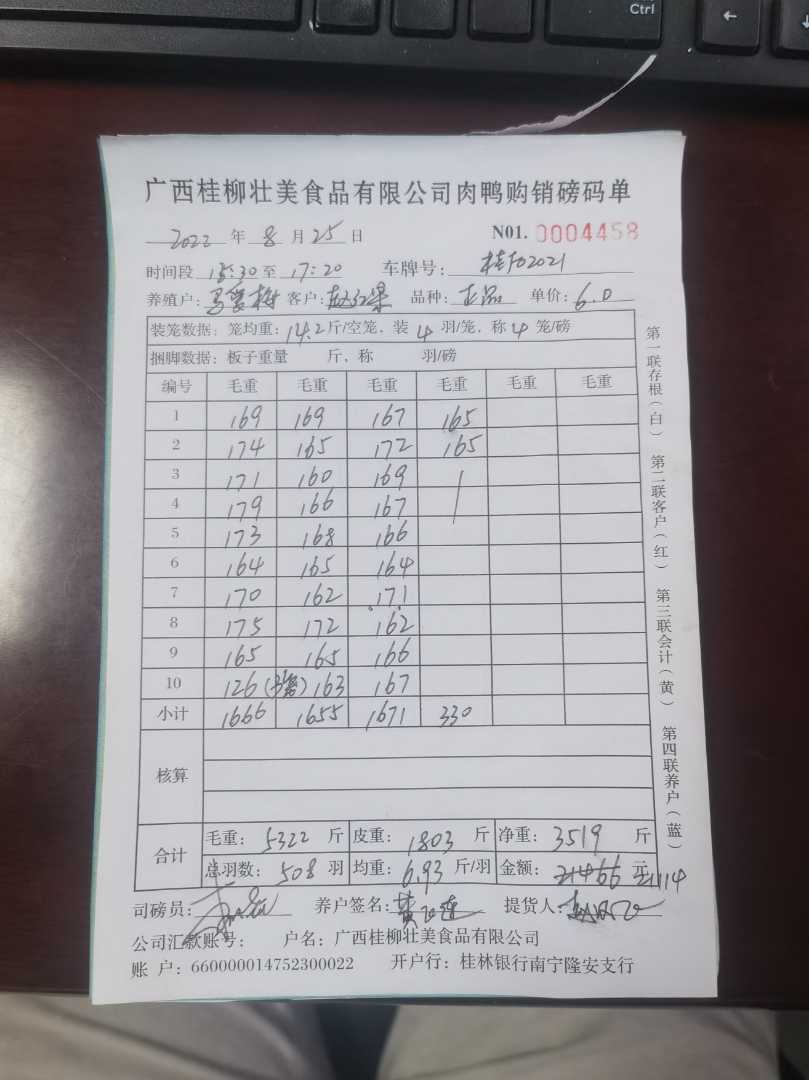 Ctrl
广西桂柳壮美食品有限公司肉鸭购销磅码单
2022 年 8 月 25 日 N01. 0004458
时间段 15:30 至 17:20 车牌号: 桂 02021
养殖户: 客户: 赵红果 品种: 正品 单价: 6.0
装笼数据: 笼均重: 14.2 斤/空笼, 装 4 羽/笼, 称 4 笼/磅
捆脚数据: 板子重量 斤, 称 羽/磅
编号 毛重 毛重 毛重 毛重 毛重 毛重
1 169 169 167 165
2 174 165 172 165
3 171 160 169
4 179 166 167
5 173 168 166
6 164 165 164
7 170 162 171
8 175 172 162
9 165 165 166
10 126 (3笼) 163 167
小计 1666 1655 1671 330
核算
合计 毛重: 5322 斤 皮重: 1803 斤 净重: 3519 斤
总羽数: 508 羽 均重: 6.93 斤/羽 金额: 21466 元 21114
司磅员: 养户签名: 提货人:
公司汇款账号: 户名: 广西桂柳壮美食品有限公司
账 户: 660000014752300022 开户行: 桂林银行南宁隆安支行
第一联存根(白) 第二联客户(红) 第三联会计(黄) 第四联养户(蓝)